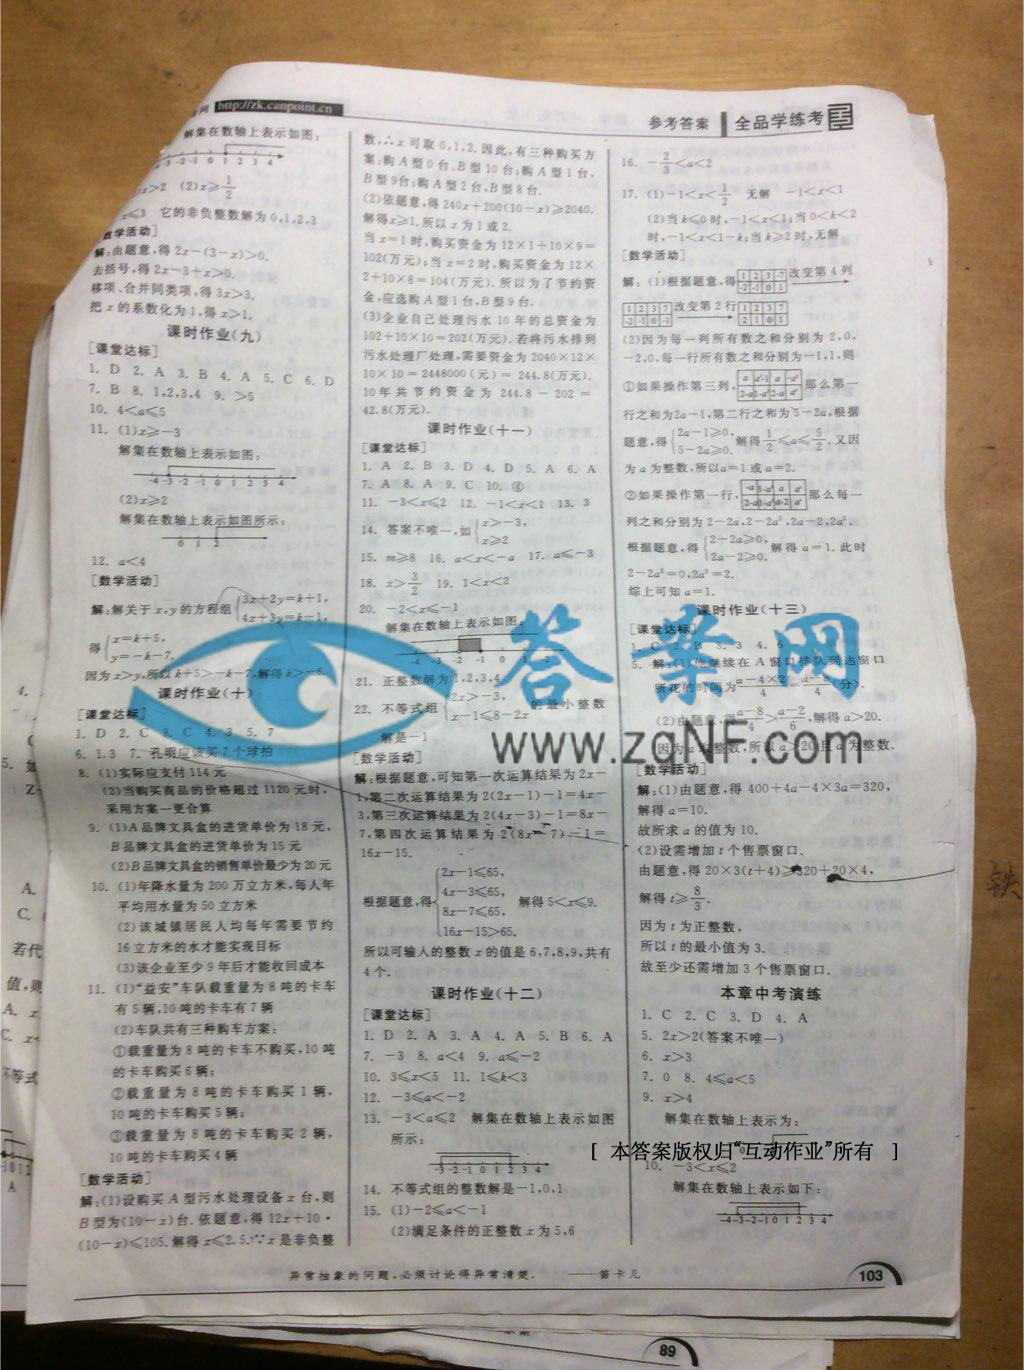 http://zk.canpoint.cn
参考答案 全品学练考
解集在数轴上表示如图:
-3 -2 -1 0 1 2 3 4
x>2 (2)x≥1/2
x≤3 它的非负整数解为0,1,2,3
数学活动]
解:由题意,得2x-(3-x)>0.
去括号,得2x-3+x>0.
移项、合并同类项,得3x>3.
把x的系数化为1,得x>1.
课时作业(九)
[课堂达标]
1. D 2. A 3. B 4. A 5. C 6. D
7. B 8. 1,2,3,4 9. >5
10. 4<a≤5
11. (1)x≥-3
解集在数轴上表示如图:
-4 -3 -2 -1 0 1 2 3 4
(2)x≥2
解集在数轴上表示如图所示:
0 1 2
12. a<4
[数学活动]
解:解关于x,y的方程组{3x+2y=k+1,
4x+3y=k-1,
得{x=k+5,
y=-k-7.
因为x>y,所以k+5>-k-7,解得k>-6.
课时作业(十)
[课堂达标]
1. D 2. C 3. C 4. 3 5. 7
6. 1.3 7. 孔明应该买7个球拍
8. (1)实际应支付114元
(2)当购买商品的价格超过1120元时,
采用方案一更合算
9. (1)A品牌文具盒的进货单价为18元,
B品牌文具盒的进货单价为15元
(2)B品牌文具盒的销售单价最少为20元
10. (1)年降水量为200万立方米,每人年
平均用水量为50立方米
(2)该城镇居民人均每年需要节约
16立方米的水才能实现目标
(3)该企业至少9年后才能收回成本
11. (1)“益安”车队载重量为8吨的卡车
有5辆,10吨的卡车有7辆
(2)车队共有三种购车方案:
①载重量为8吨的卡车不购买,10吨
的卡车购买6辆;
②载重量为8吨的卡车购买1辆,
10吨的卡车购买5辆;
③载重量为8吨的卡车购买2辆,
10吨的卡车购买4辆
[数学活动]
解:(1)设购买A型污水处理设备x台,则
B型为(10-x)台.依题意,得12x+10·
(10-x)≤105.解得x≤2.5.∵x是非负整
数,∴x可取0,1,2.因此,有三种购买方
案:购A型0台,B型10台;购A型1台,
B型9台;购A型2台,B型8台.
(2)依题意,得240x+200(10-x)≥2040.
解得x≥1.所以x为1或2.
当x=1时,购买资金为12×1+10×9=
102(万元);当x=2时,购买资金为12×
2+10×8=104(万元).所以为了节约资
金,应选购A型1台,B型9台.
(3)企业自己处理污水10年的总资金为
102+10×10=202(万元).若将污水排到
污水处理厂处理,需要资金为2040×12×
10×10=2448000(元)=244.8(万元).
10年共节约资金为244.8-202=
42.8(万元).
课时作业(十一)
[课堂达标]
1. A 2. B 3. D 4. D 5. A 6. A
7. A 8. A 9. C 10. ④
11. -3<x≤2 12. -1<x<1 13. 3
14. 答案不唯一,如{x>-3,
x≥2
15. m≥8 16. a<x<-a 17. a≤-3
18. x>3/2 19. 1<x<2
20. -2<x≤-1
解集在数轴上表示如图:
-4 -3 -2 -1 0 1 2 3 4
21. 正整数解为1,2,3,4
22. 不等式组{2x>-3,
x-1≤8-2x的最小整数
解是-1
[数学活动]
解:根据题意,可知第一次运算结果为2x-
1,第二次运算结果为2(2x-1)-1=4x-
3,第三次运算结果为2(4x-3)-1=8x-
7,第四次运算结果为2(8x-7)-1=
16x-15.
根据题意,得{2x-1≤65,
4x-3≤65,
8x-7≤65,
16x-15>65.
解得5<x≤9.
所以可输入的整数x的值是6,7,8,9,共有
4个.
课时作业(十二)
[课堂达标]
1. D 2. A 3. A 4. A 5. B 6. A
7. -3 8. a<4 9. a≤-2
10. 3≤x<5 11. 1≤k<3
12. -3≤a<-2
13. -3<a≤2 解集在数轴上表示如图
所示:
-3 -2 -1 0 1 2 3
14. 不等式组的整数解是-1,0,1
15. (1)-2≤a<-1
(2)满足条件的正整数x为5,6
16. -2/3<a<2
17. (1)-1<x<1/2 无解 -1<x<1
(2)当k≤0时,-1<x<1;当0<k<2
时,-1<x<1-k;当k≥2时,无解
[数学活动]
解:(1)根据题意,得
1 2 3 -7
-2 -1 0 1
改变第4列
1 2 3 7
-2 -1 0 -1
改变第2行
1 2 3 7
2 1 0 1
(2)因为每一列所有数之和分别为2,0,
-2,0,每一行所有数之和分别为-1,1,则
①如果操作第三列,
那么第一
行之和为2a-1,第二行之和为5-2a,根据
题意,得{2a-1≥0,
5-2a≥0.
解得1/2≤a≤5/2.又因
为a为整数,所以a=1或a=2.
②如果操作第一行,
那么每一
列之和分别为2-2a,2-2a²,2a-2,2a².
根据题意,得{2-2a≥0,
2a-2≥0.
解得a=1.此时
2-2a²=0,2a²=2.
综上可知a=1.
课时作业(十三)
[课堂达标]
1. C 2. B 3. 3 4. 6
5. 解:(1)他继续在A窗口排队到达窗口
所花的时间为(a-4×2)/4=(a-8)/4(分).
(2)由题意,得(a-8)/4>(a-2)/6,解得a>20.
因为a取整数,所以a>20且a为整数.
[数学活动]
解:(1)由题意,得400+4a-4×3a=320,
解得a=10.
故所求a的值为10.
(2)设需增加t个售票窗口.
由题意,得20×3(t+4)≥320+20×4,
解得t≥8/3.
因为t为正整数,
所以t的最小值为3.
故至少还需增加3个售票窗口.
本章中考演练
1. C 2. C 3. D 4. A
5. 2x>2(答案不唯一)
6. x>3
7. 0 8. 4≤a<5
9. x>4
解集在数轴上表示为:
[ 本答案版权归“互动作业”所有 ]
10. -3<x≤2
解集在数轴上表示如下:
-4 -3 -2 -1 0 1 2 3 4
异常抽象的问题,必须讨论得异常清楚. ——笛卡儿
103
89
答案网
www.zqNF.com
铁
4.
5.
A.
C.
若代
值,则
A. x
C. x
不等式
A